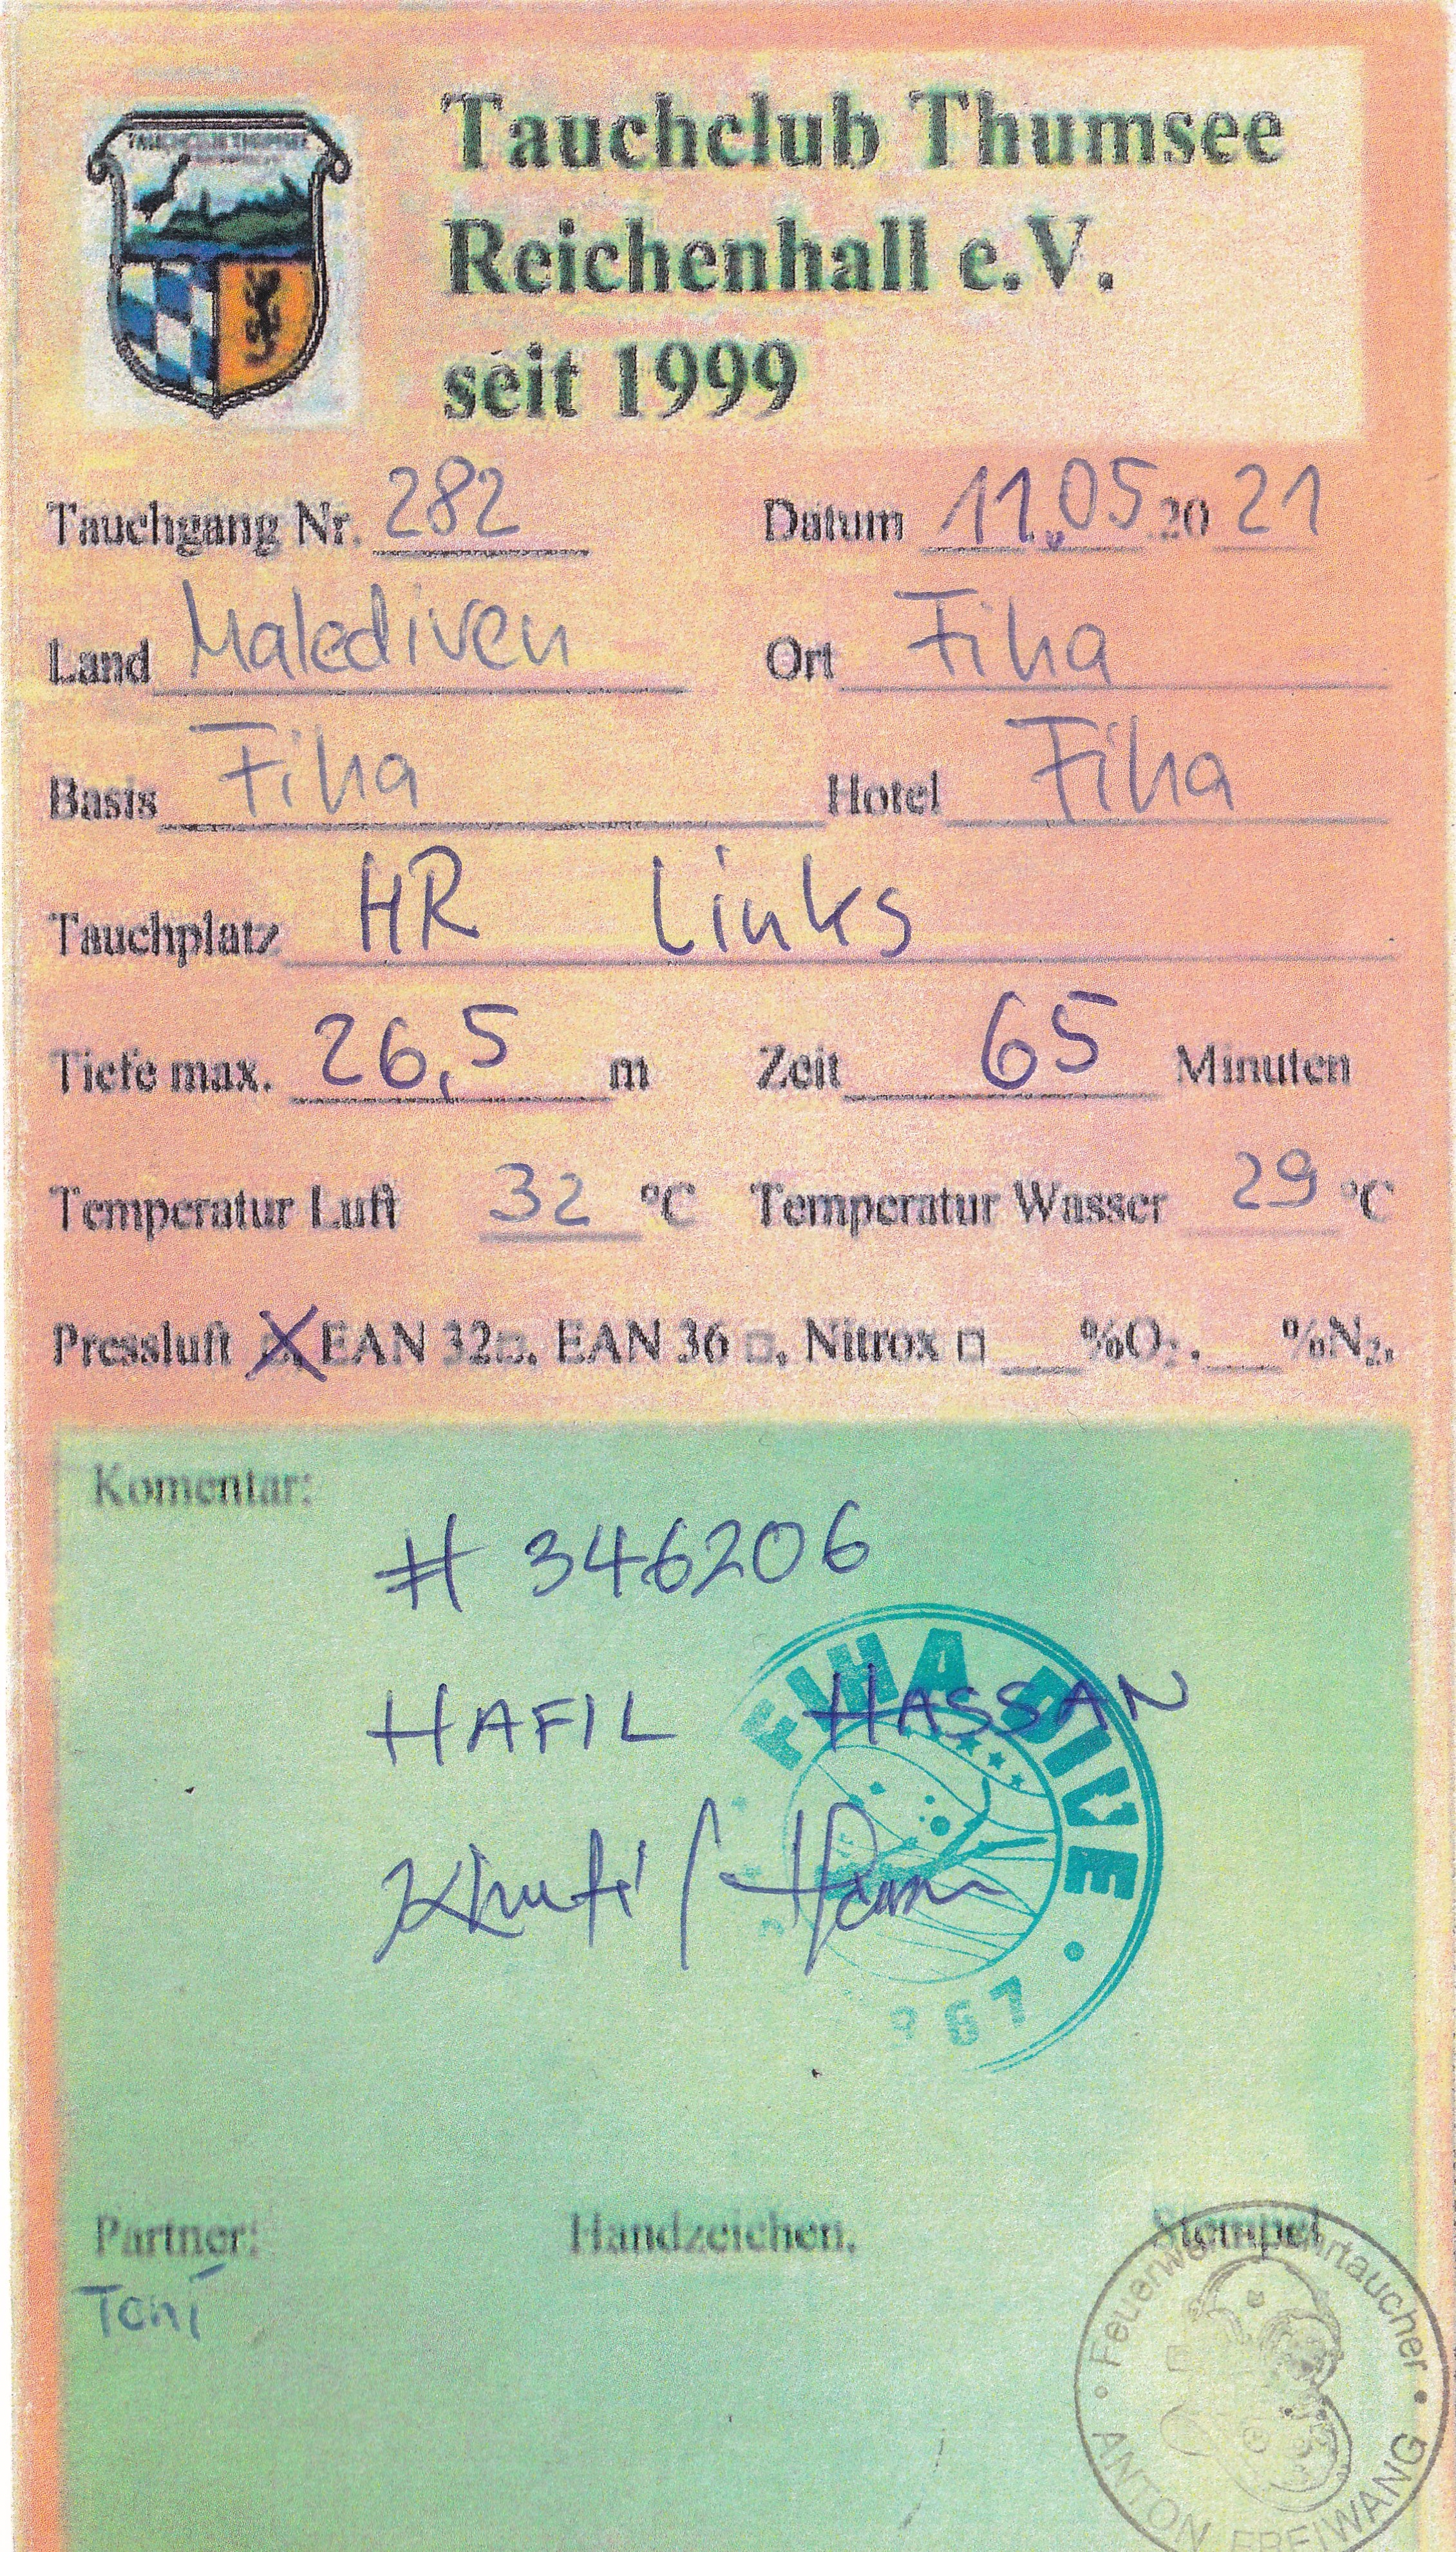 Tauchclub Thumsee
Reichenhall e.V.
seit 1999
Tauchgang Nr. 282 Datum 11.05.2021
Land Malediven Ort Fiha
Basis Fiha Hotel Fiha
Tauchplatz HR Links
Tiefe max. 26,5 m Zeit 65 Minuten
Temperatur Luft 32 °C Temperatur Wasser 29 °C
Pressluft X, EAN 32□, EAN 36 □, Nitrox □ ___%O2, ___%N2,
Komentar:
# 346206
HAFIL HASSAN
FIHA DIVE
967
Partner: Handzeichen. Stempel
Toni
ANTON FREIWANG